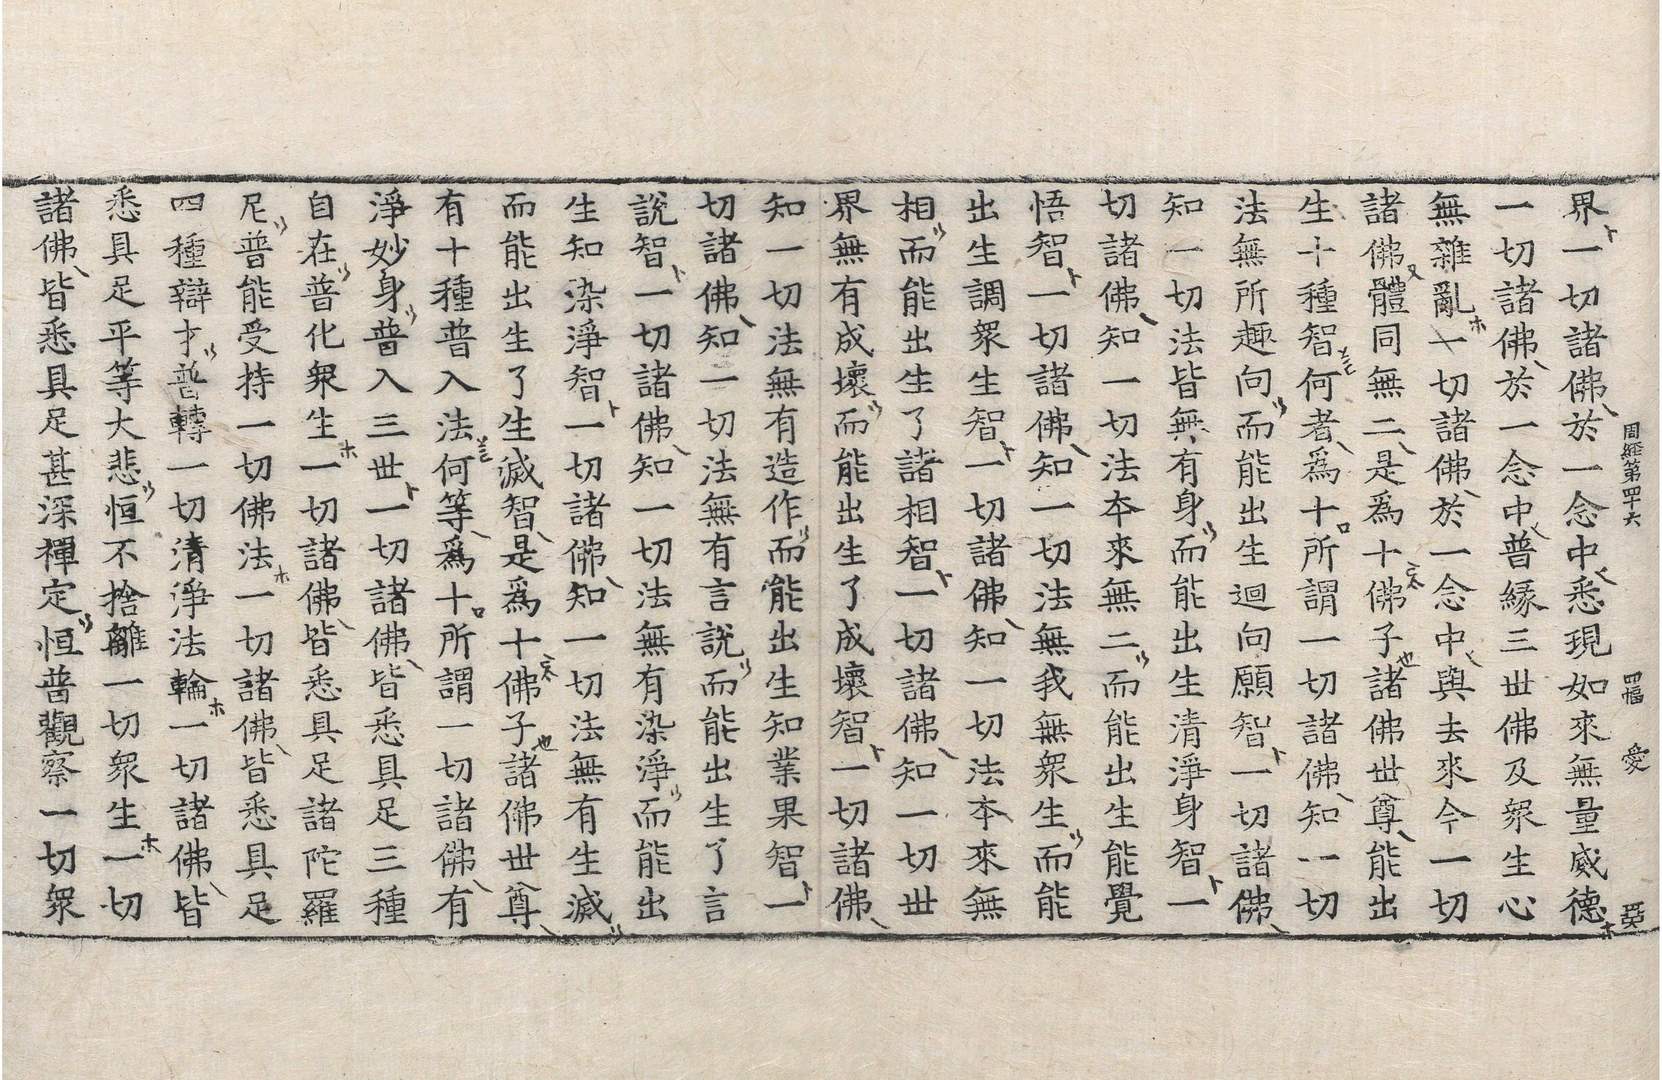 周經第四十六 四幅 愛
界一切諸佛於一念中悉現如來無量威德
一切諸佛於一念中普緣三丗佛及衆生心
無雜亂一切諸佛於一念中與去來今一切
諸佛體同無二是爲十佛子諸佛丗尊能出
生十種智何者爲十所謂一切諸佛知一切
法無所趣向而能出生迴向願智一切諸佛
知一切法皆無有身而能出生清淨身智一
切諸佛知一切法夲來無二而能出生能覺
悟智一切諸佛知一切法無我無衆生而能
出生調衆生智一切諸佛知一切法夲來無
相而能出生了諸相智一切諸佛知一切丗
界無有成壞而能出生了成壞智一切諸佛
知一切法無有造作而能出生知業果智一
切諸佛知一切法無有言說而能出生了言
說智一切諸佛知一切法無有染淨而能出
生知染淨智一切諸佛知一切法無有生滅
而能出生了生滅智是爲十佛子諸佛丗尊
有十種普入法何等爲十所謂一切諸佛有
淨妙身普入三丗一切諸佛皆悉具足三種
自在普化衆生一切諸佛皆悉具足諸陀羅
尼普能受持一切佛法一切諸佛皆悉具足
四種辯才普轉一切清淨法輪一切諸佛皆
悉具足平等大悲恒不捨離一切衆生一切
諸佛皆悉具足甚深禪定恒普觀察一切衆